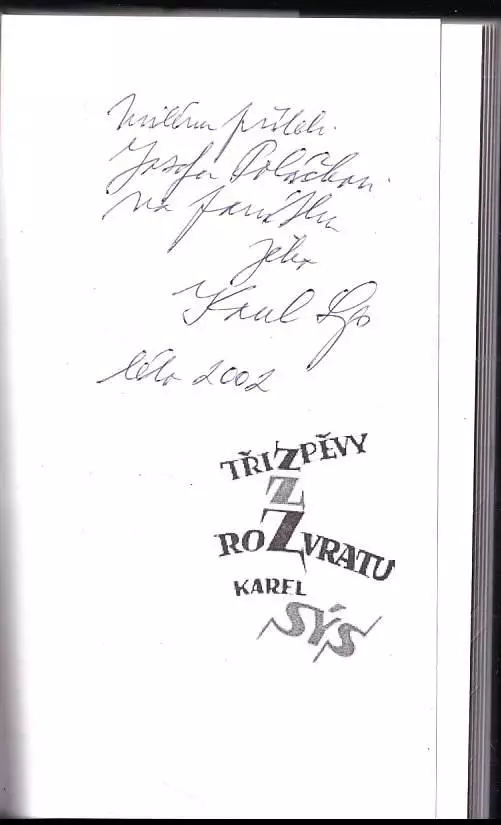 Milému příteli
Josefu Poláčkovi
na památku
jeho
Karel Sýs
léto 2002
TŘI ZPĚVY
Z
ROZVRATU
KAREL
SÝS